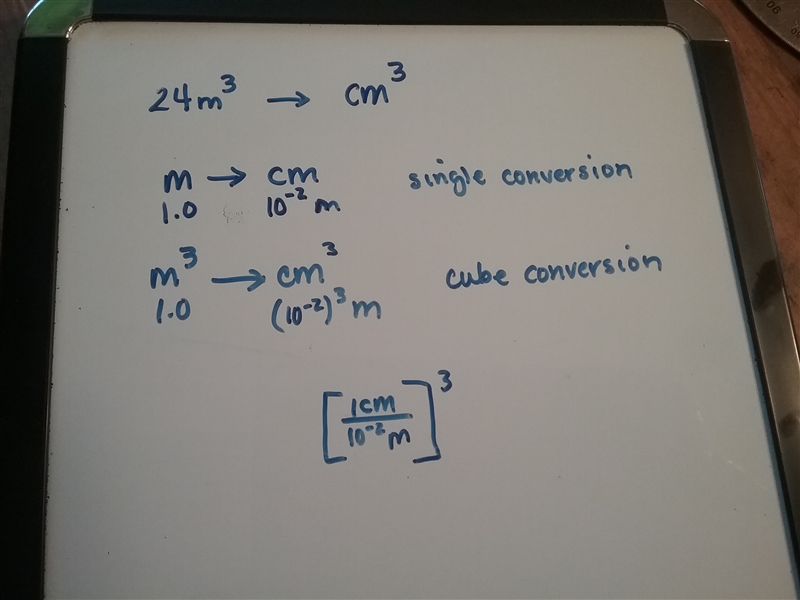 24m³ → cm³
m → cm single conversion
1.0 10⁻² m
m³ → cm³ cube conversion
1.0 (10⁻²)³ m
[1cm / 10⁻² m]³